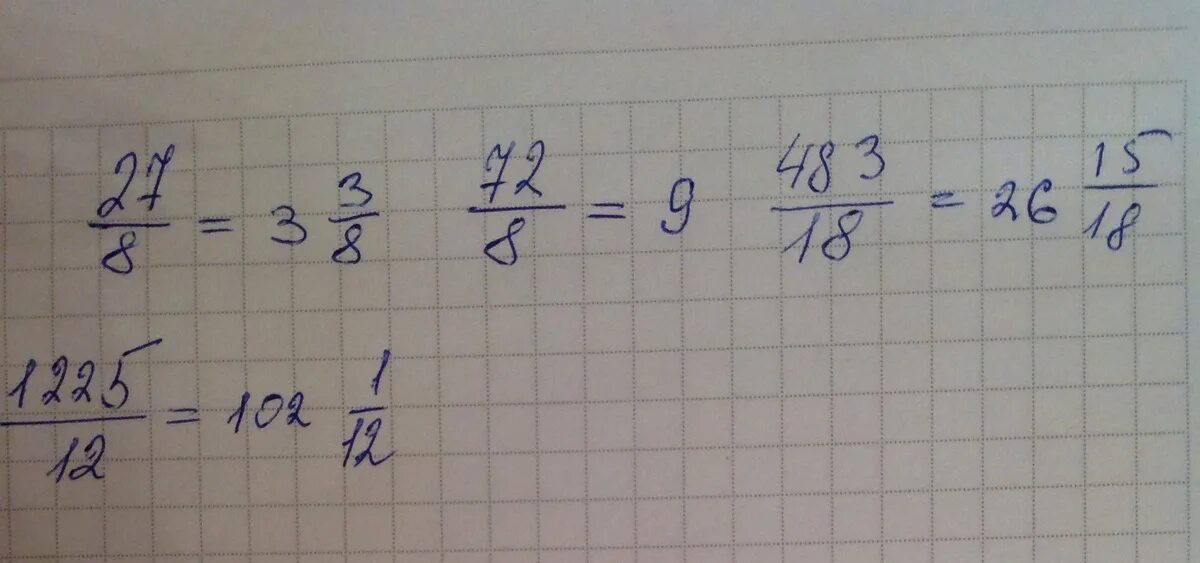 27/8 = 3 3/8   72/8 = 9   483/18 = 26 15/18
1225/12 = 102 1/12